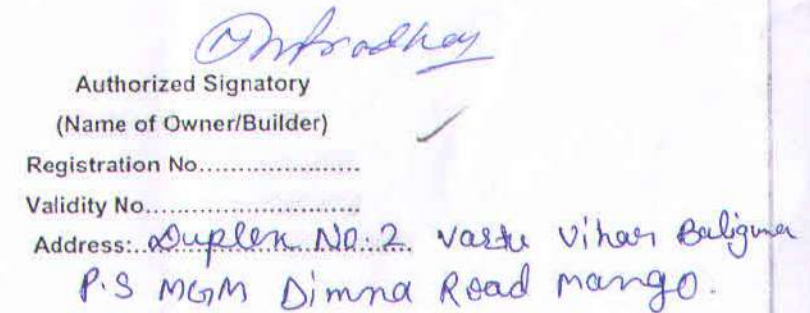 Authorized Signatory
(Name of Owner/Builder)
Registration No.....................
Validity No............................
Address:..Duplex No:2 Vastu Vihar Baliguma
P.S MGM Dimna Road Mango.